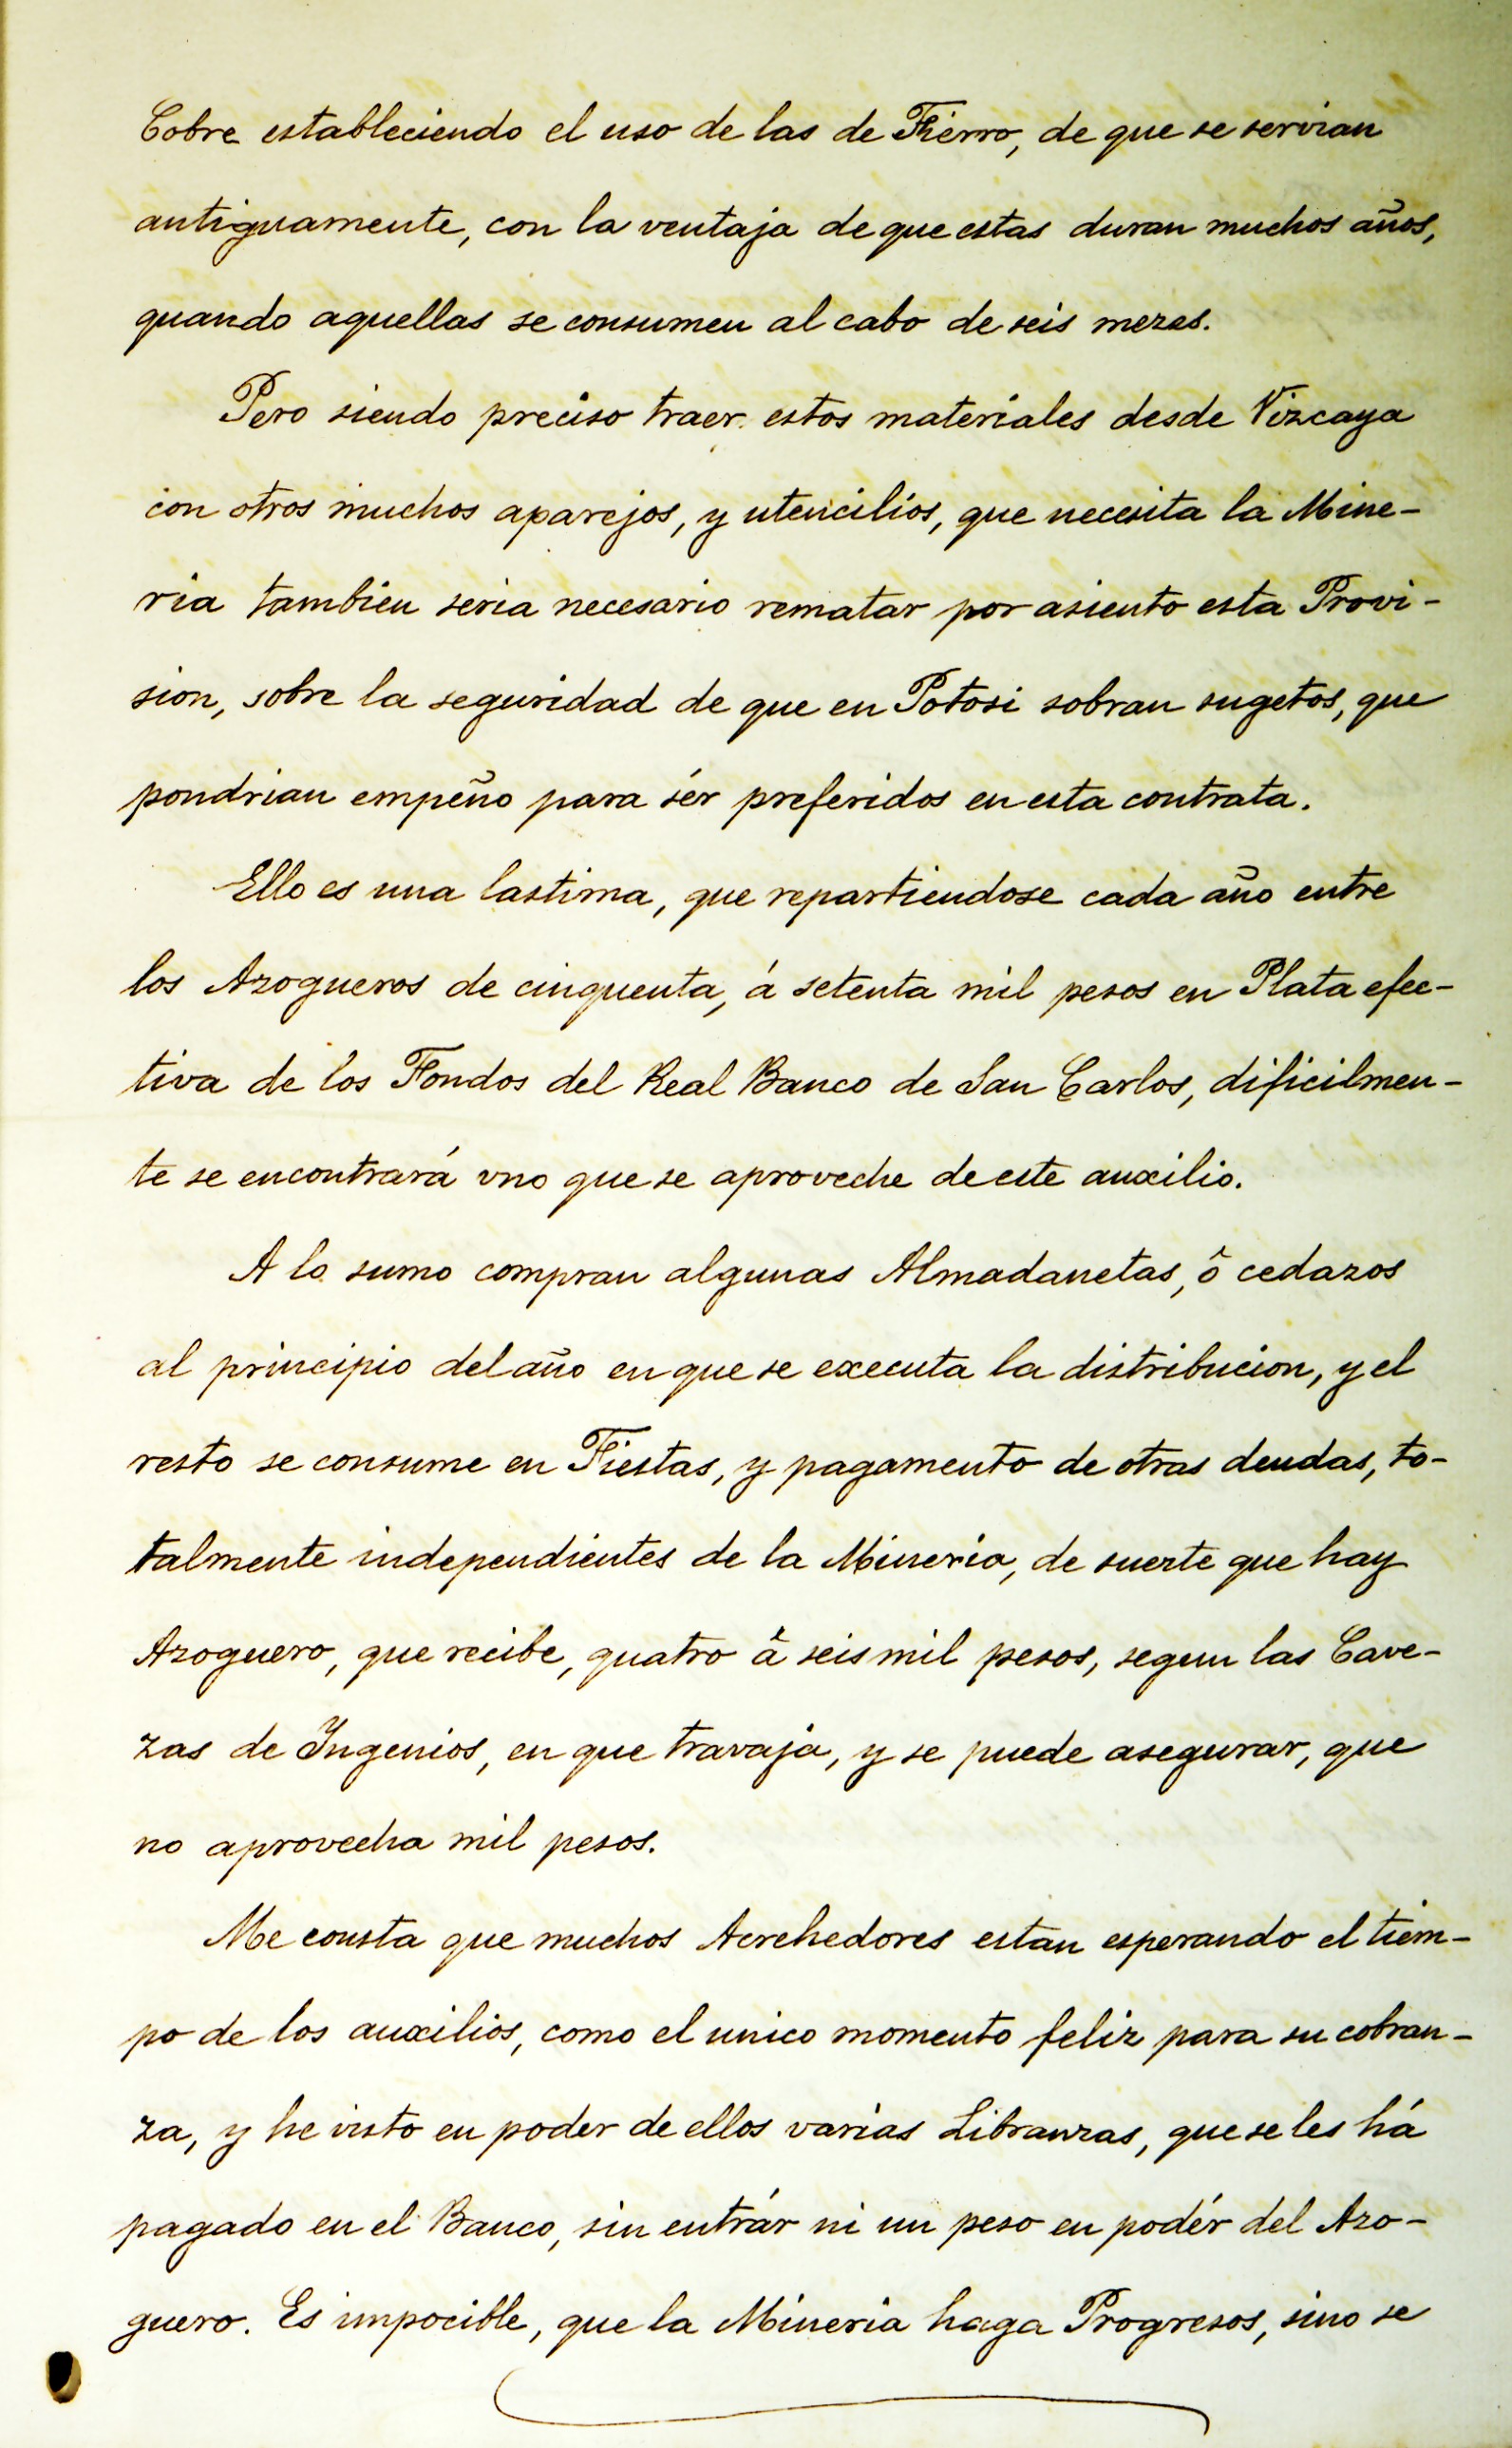 Cobre estableciendo el uso de las de Fierro, de que se servian
antiguamente, con la ventaja de que estas duran muchos años,
quando aquellas se consumen al cabo de seis mezes.
Pero siendo preciso traer estos materiales desde Vizcaya
con otros muchos aparejos, y utencilios, que necesita la Mine-
ria tambien seria necesario rematar por asiento esta Provi-
sion, sobre la seguridad de que en Potosi sobran sugetos, que
pondrian empeño para sér preferidos en esta contrata.
Ello es una lastima, que repartiendose cada año entre
los Azogueros de cinquenta, á setenta mil pesos en Plata efec-
tiva de los Fondos del Real Banco de San Carlos, dificilmen-
te se encontrará vno que se aproveche de este auxilio.
A lo sumo compran algunas Almadanetas, ô cedazos
al principio del año en que se executa la distribucion, y el
resto se consume en Fiestas, y pagamento de otras deudas, to-
talmente independientes de la Mineria, de suerte que hay
Azoguero, que recibe, quatro â seis mil pesos, segun las Cave-
zas de Ingenios, en que travaja, y se puede asegurar, que
no aprovecha mil pesos.
Me consta que muchos Acrehedores estan esperando el tiem-
po de los auxilios, como el unico momento feliz para su cobran-
za, y he visto en poder de ellos varias Libranzas, que se les há
pagado en el Banco, sin entrár ni un peso en podér del Azo-
guero. Es impocible, que la Mineria haga Progresos, sino se